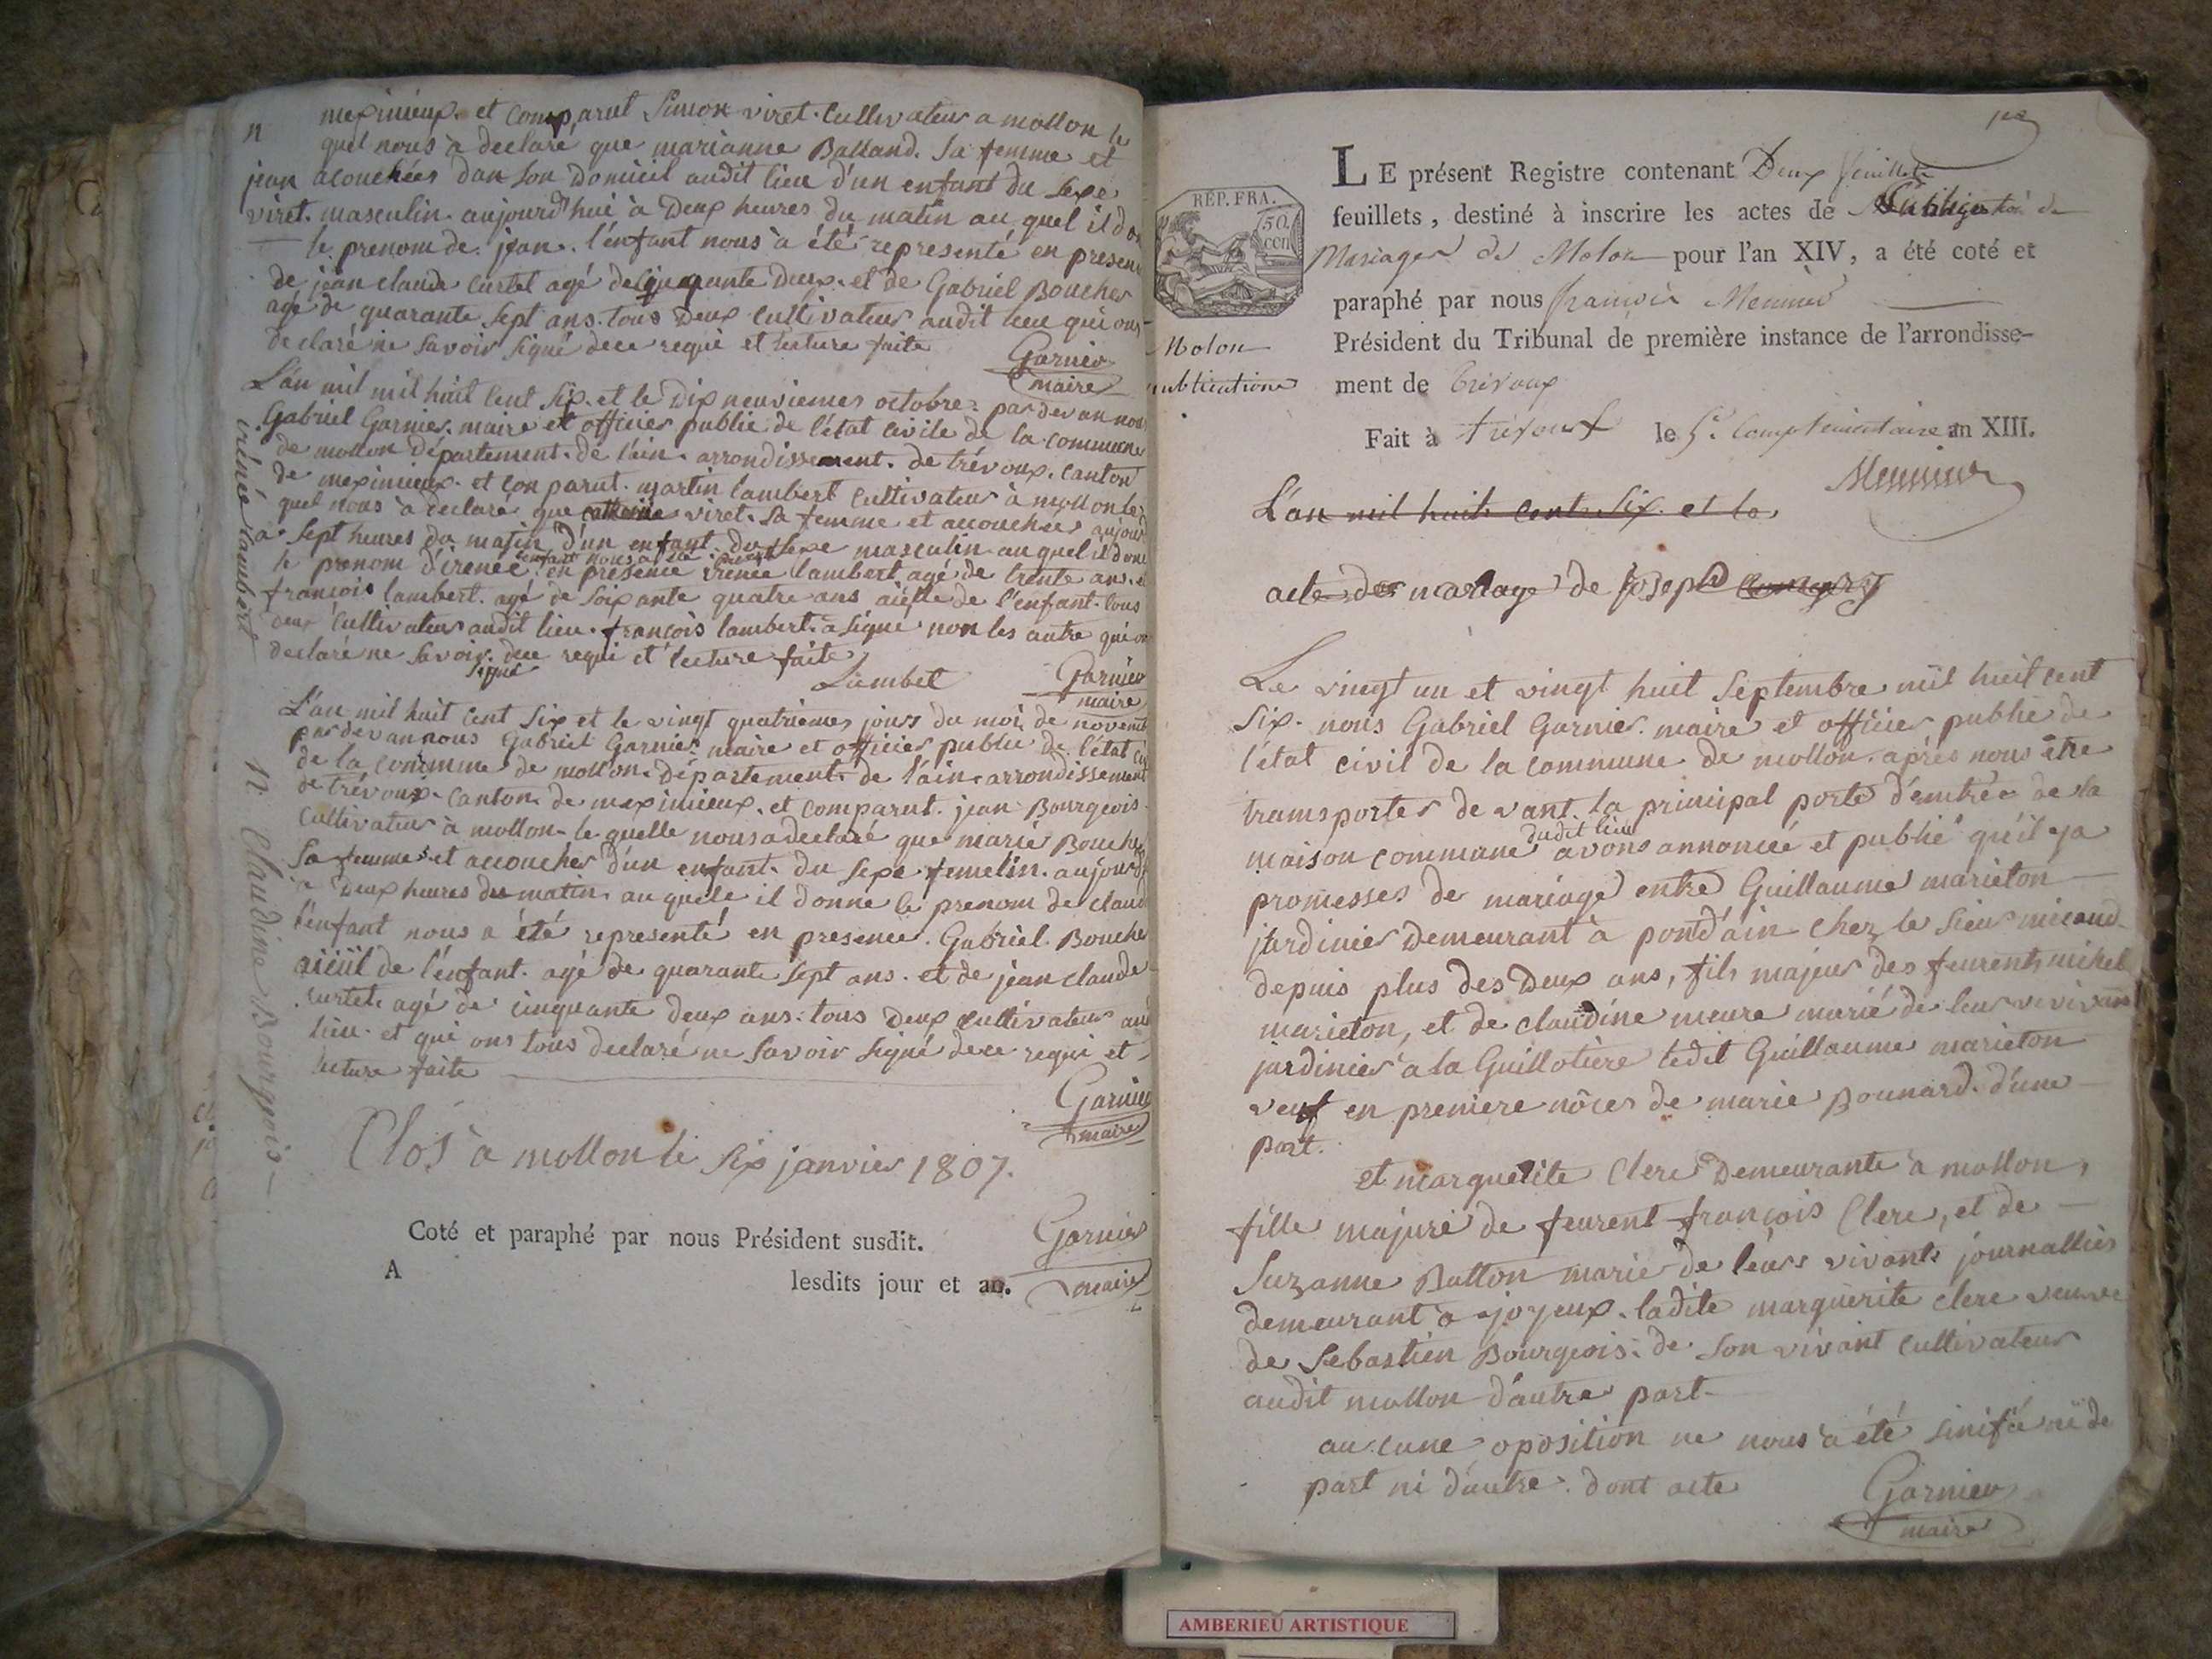 meximieux. et comparut Simon viret. Cultivateur a mollon le
n
quel nous à declaré que marianne Balland. Sa femme et
jean acouchées dan son Domicil audit lieu d'un enfant du Sexe
viret. masculin. aujourd'hui à Deux heures du matin au quel il don
le prenom de. jean. l'enfant nous à été representé en presen
de jean claude curtet agé de cinquante Deux. et de Gabriel Boucher
agé de quarante Sept ans. tous Deux Cultivateur audit lieu qui ons
declaré ne Savoir Signé dece requi et lecture faite
Garnier
maire
L'an mil mil huit Cent Six. et le Dix neuviemes octobre. par devan nous
Gabriel Garnier. maire et officier public de l'état civile de la commune
de mollon Département. de l'ain. arrondissement. de trévoux. canton
de meximieux. et con parut. martin lambert Cultivateur à mollon le
quel nous à declaré que catherine viret. Sa femme et accouchées aujourd
à Sept heures du matin d'un enfant. du Sexe masculin au quel il donne
l'enfant nous a été
le prenom d'irenée. en présence irenée lambert agé de trente ans. et
françois lambert. agé de Soixante quatre ans aieulle de l'enfant. tous
deux Cultivateur audit lieu. françois lambert. a Signé non les autre qui on
declaré ne Savoir. dece requi et lecture faite
Signé
irénée lambert
Lambet
Garnier
maire
L'an mil huit Cent Six et le vingt quatriemes jours du moi de novemb
par devan nous Gabriel Garnier maire et officier public de l'état civ
de la commune de mollon. Département de l'ain. arrondissement
de trévoux. Canton. de meximieux. et comparut. jean Bourgeois.
Cultivateur à mollon. le quelle nous a declaré que marie Bouche
Sa femme et accoucher d'un enfant. du Sexe femelin. aujourd
à Deux heures du matin. au quele il donne le prenom de claud
l'enfant nous a été representé en presence. Gabriel Bouche
aieüil de l'enfant. agé de quarante Sept ans. et de jean claude
curtet. agé de cinquante deux ans. tous Deux cultivateur aud
lieu. et qui ons tous declaré ne Savoir Signé dece requi et
lecture faite
n. Claudine Bourgeois
Garnier
maire
Clos à mollon le Six janvier 1807.
Garnier
maire
Coté et paraphé par nous Président susdit.
A lesdits jour et an.
LE présent Registre contenant Deux feuillets
feuillets, destiné à inscrire les actes de Publication de
Mariages de Molon pour l'an XIV, a été coté et
paraphé par nous françois Mennier
Président du Tribunal de première instance de l'arrondisse-
ment de trévoux
Fait à trevoux le 5e Complémentaire an XIII.
Mennier
RÉP. FRA.
50.
cen
Molon
publications
L'an mil huit Cent Six. et le
acte de mariage de Joseph
Le vingt un et vingt huit Septembre mil huit cent
Six. nous Gabriel Garnier. maire et officier public de
l'état civil de la commune de mollon. après nous être
transporter de vant. la principal porte d'emtrée de la
dudit lieu
maison commune avons annoncé et publié qu'il ya
promesses de mariage entre Guillaume marieton
jardinier Demeurant à pond'ain chez le Sieur
depuis plus des Deux ans, fils majeur des feurent mikel
marieton, et de claudine meure marié de leur vivivant
jardinier a la Guillotière ledit Guillaume marieton
veuf en premiere nôces de marie Bounard. d'une
part.
et marguerite Clerc Demeurante a mollon,
fille majure de feurent françois Clerc, et de
Suzanne Batton marié de leurs vivants journallier
demeurant a joyeux. ladite marguérite clerc veuve
de Sebastien Bourgeois. de Son vivant Cultivateur
audit mollon d'autre part
aucune oposition ne nous a été sinifié ni de
part ni d'autre. dont acte
Garnier
maire
AMBERIEU ARTISTIQUE